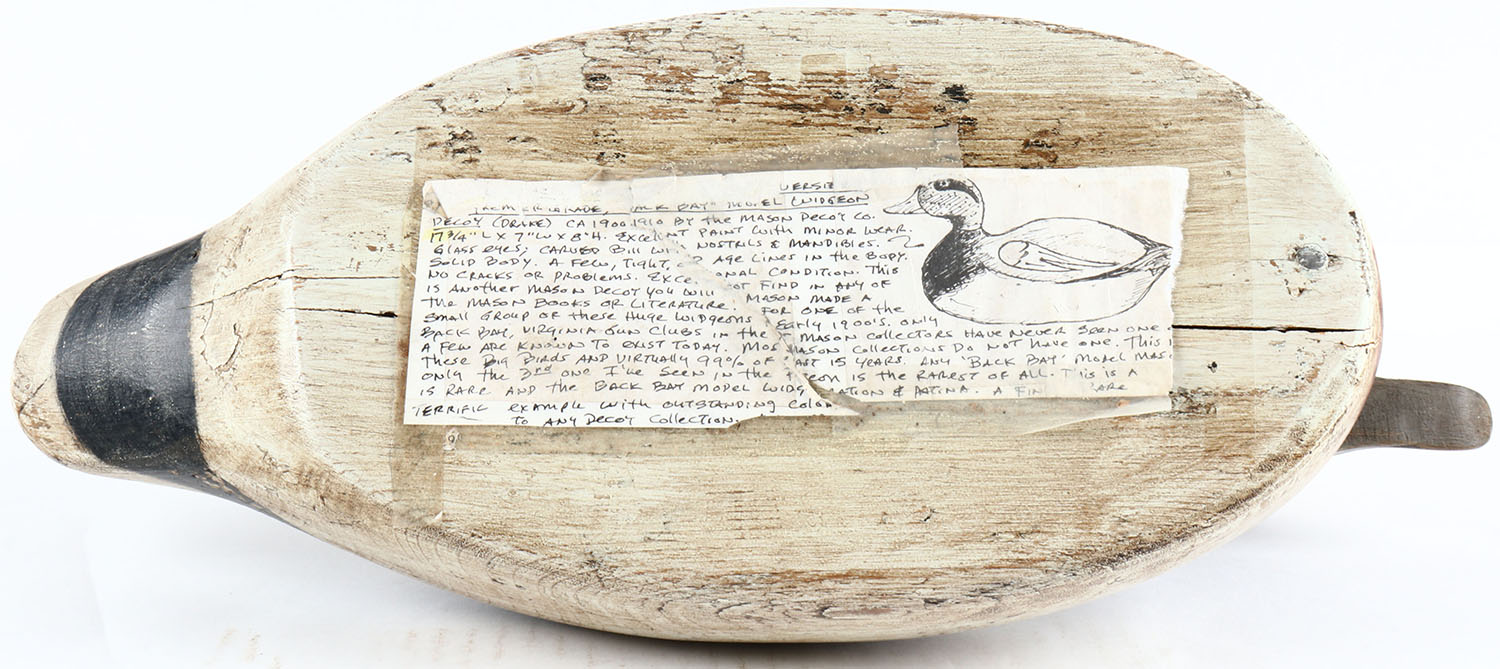 OVERSIZE
GRADE, "BACK BAY" MODEL WIDGEON
DECOY (DRAKE) CA 1900-1910 BY the MASON DECOY CO.
17 3/4" L X 7" W X 8" H. EXCELLENT PAINT with MINOR WEAR.
GLASS eyes; CARVED BILL NOSTRILS & MANDIBLES.
SOLID BODY. A FEW, TIGHT, AGE LINES IN the BODY.
NO CRACKS OR PROBLEMS. CONDITION. THIS
IS ANOTHER MASON DECOY YOU WILL NOT FIND IN ANY OF
the MASON BOOKS OR LITERATURE. MASON MADE A
SMALL GROUP OF these HUGE WIDGEONS FOR ONE OF the
BACK BAY, VIRGINIA GUN CLUBS IN the EARLY 1900'S. ONLY
A FEW ARE KNOWN TO EXIST TODAY. MASON COLLECTORS HAVE NEVER SEEN ONE.
these BIG BIRDS AND VIRTUALLY 99% OF MASON COLLECTIONS DO NOT HAVE ONE. THIS
ONLY the 3rd ONE I'VE SEEN IN the 15 YEARS. ANY "BACK BAY" MODEL
IS RARE AND the BACK BAY MODEL IS the RAREST OF ALL. THIS IS A
TERRIFIC example with OUTSTANDING & PATINA. A RARE
TO ANY DECOY COLLECTION.